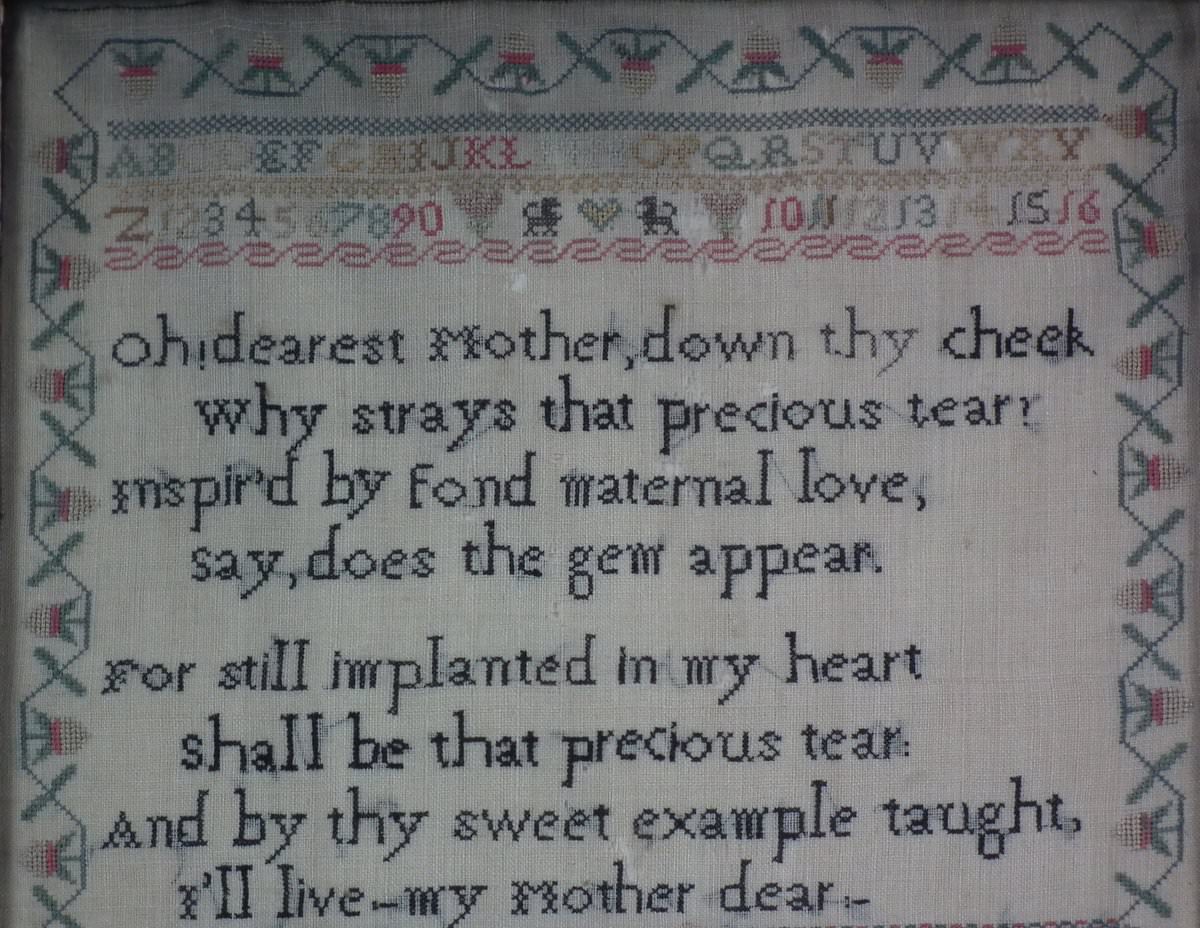 AB EF GHIJKL OPQRSTUVWXY
Z1234567890 10 11 12 13 14 15 16
Oh! dearest Mother, down thy cheek
Why strays that precious tear?
Inspir'd by fond maternal love,
say, does the gem appear.
For still implanted in my heart
shall be that precious tear:
And by thy sweet example taught,
I'll live-my Mother dear.-